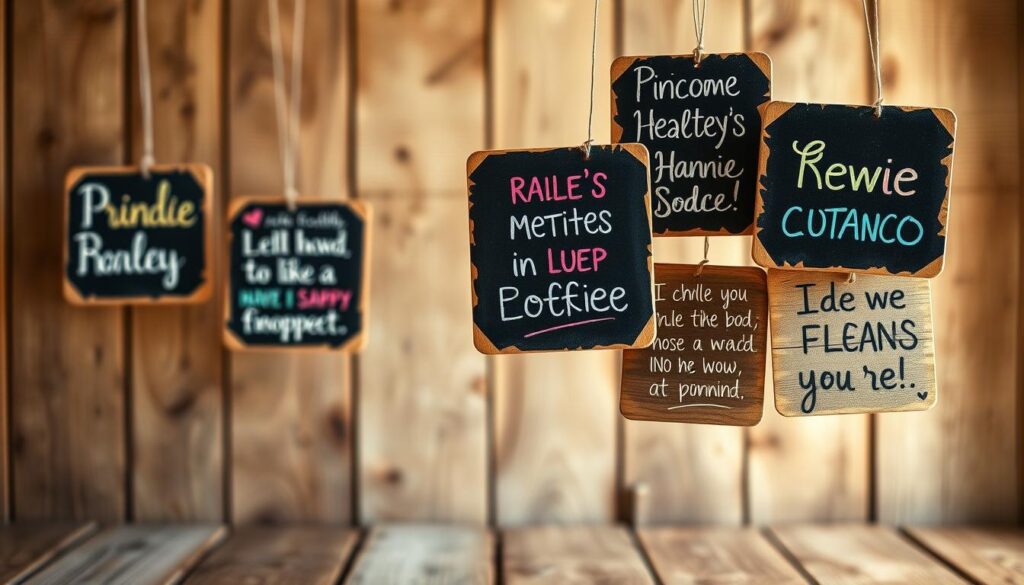 Prindie
Roaley
Lell howd,
to like a
HAVE I SAPPY
finoppect.
RAILE'S
METITES
in LUEP
Eoffiee
Pincome
Healtey's
Hannie
Sodce!
Rewie
CUTANCO
I chille you
the bod,
hose a wacd
INO he wow,
at ponnind.
Ide we
FLEANS
you're!.